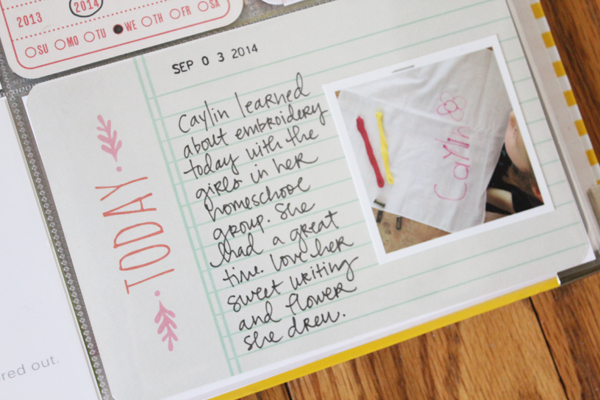 2013
2014
SU MO TU WE TH FR SA
SEP 03 2014
TODAY
Caylin learned
about embroidery
today with the
girls in her
homeschool
group. She
had a great
time. Love her
sweet writing
and flower
she drew.
Caylin
red out.